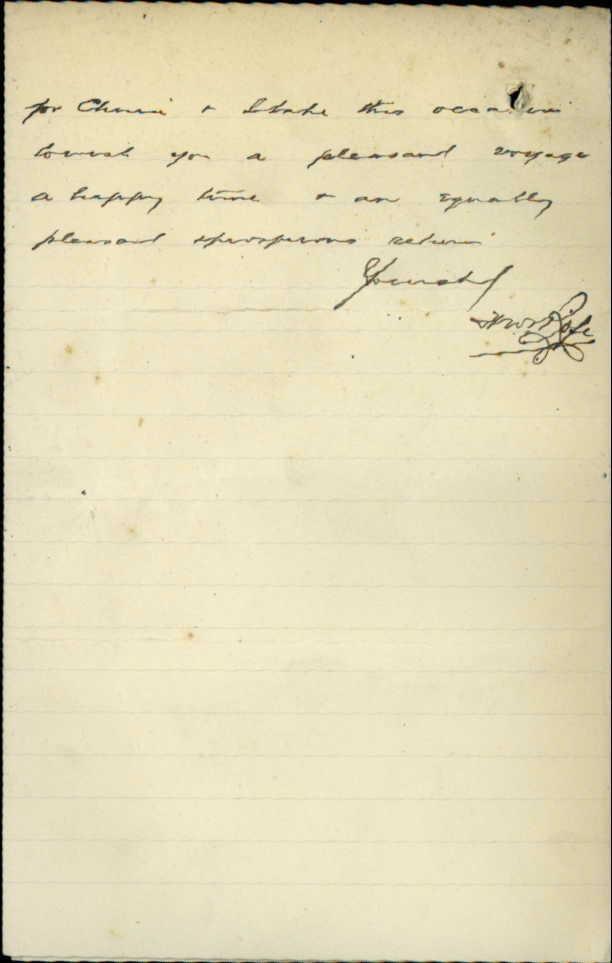 for China & I take this occasion
to wish you a pleasant voyage
a happy time & an equally
pleasant & prosperous return
Yours